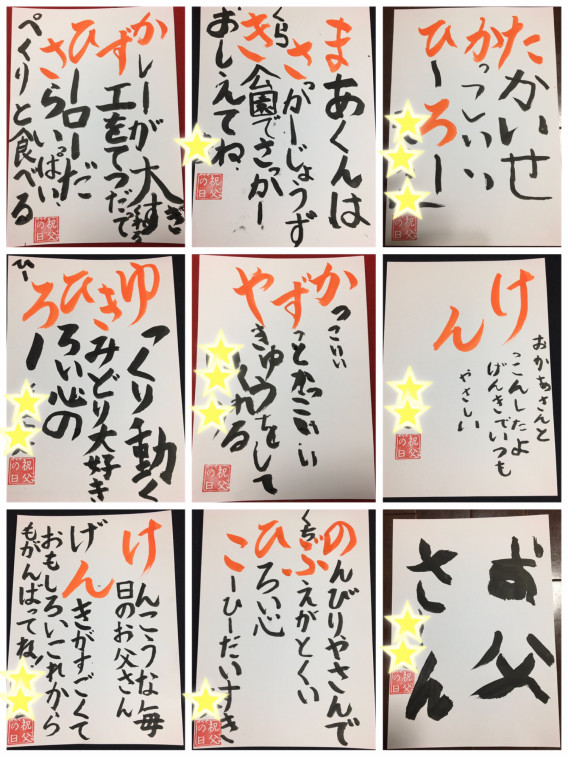 かレーが大すき
ず工をてつだって
くれる
ひーローだ
さらいっぱい
ぺろりと食べる
祝父の日
まあくんは
さっかーじょうず
くらき公園でさっかー
おしえてね
祝父の日
たかいせ
かっこいい
ひーろー
祝父の日
ゆっくり動く
きみどり大好き
ひろい心の
ひーろー
祝父の日
かっこいい
ずっとかっこいい
やきゅうをして
くれる
祝父の日
おかあさんと
けっこんしたよ
げんきでいつも
やさしい
けん
祝父の日
けんこうな毎
日のお父さん
げんきがすごくて
おもしろいこれから
もがんばってね!
祝父の日
のんびりやさんで
くちぶえがとくい
ひろい心
こーひーだいすき
祝父の日
お父
さん
祝父の日